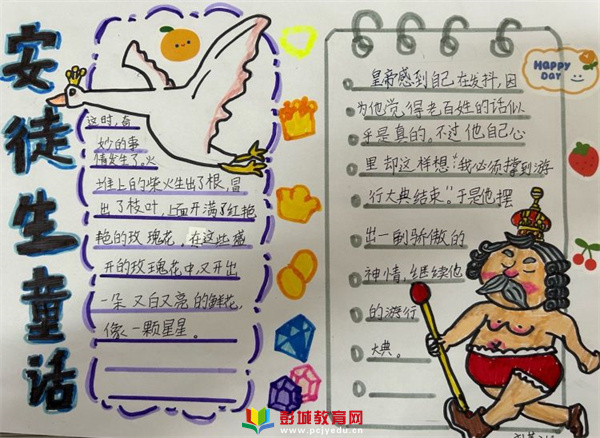 安徒生童话
这时，有
妙的事
情发生了。火
堆上的柴火生出了根，冒
出了枝叶，上面开满了红艳
艳的玫瑰花，在这些盛
开的玫瑰花中又开出
一朵又白又亮的鲜花，
像一颗星星。
HAPPY
DAY
皇帝感到自己在发抖，因
为他觉得老百姓的话似
乎是真的。不过他自己心
里却这样想“我必须撑到游
行大典结束”。于是他摆
出一副骄傲的
神情，继续他
的游行
大典。
彭城教育网
www.pcjyedu.cn